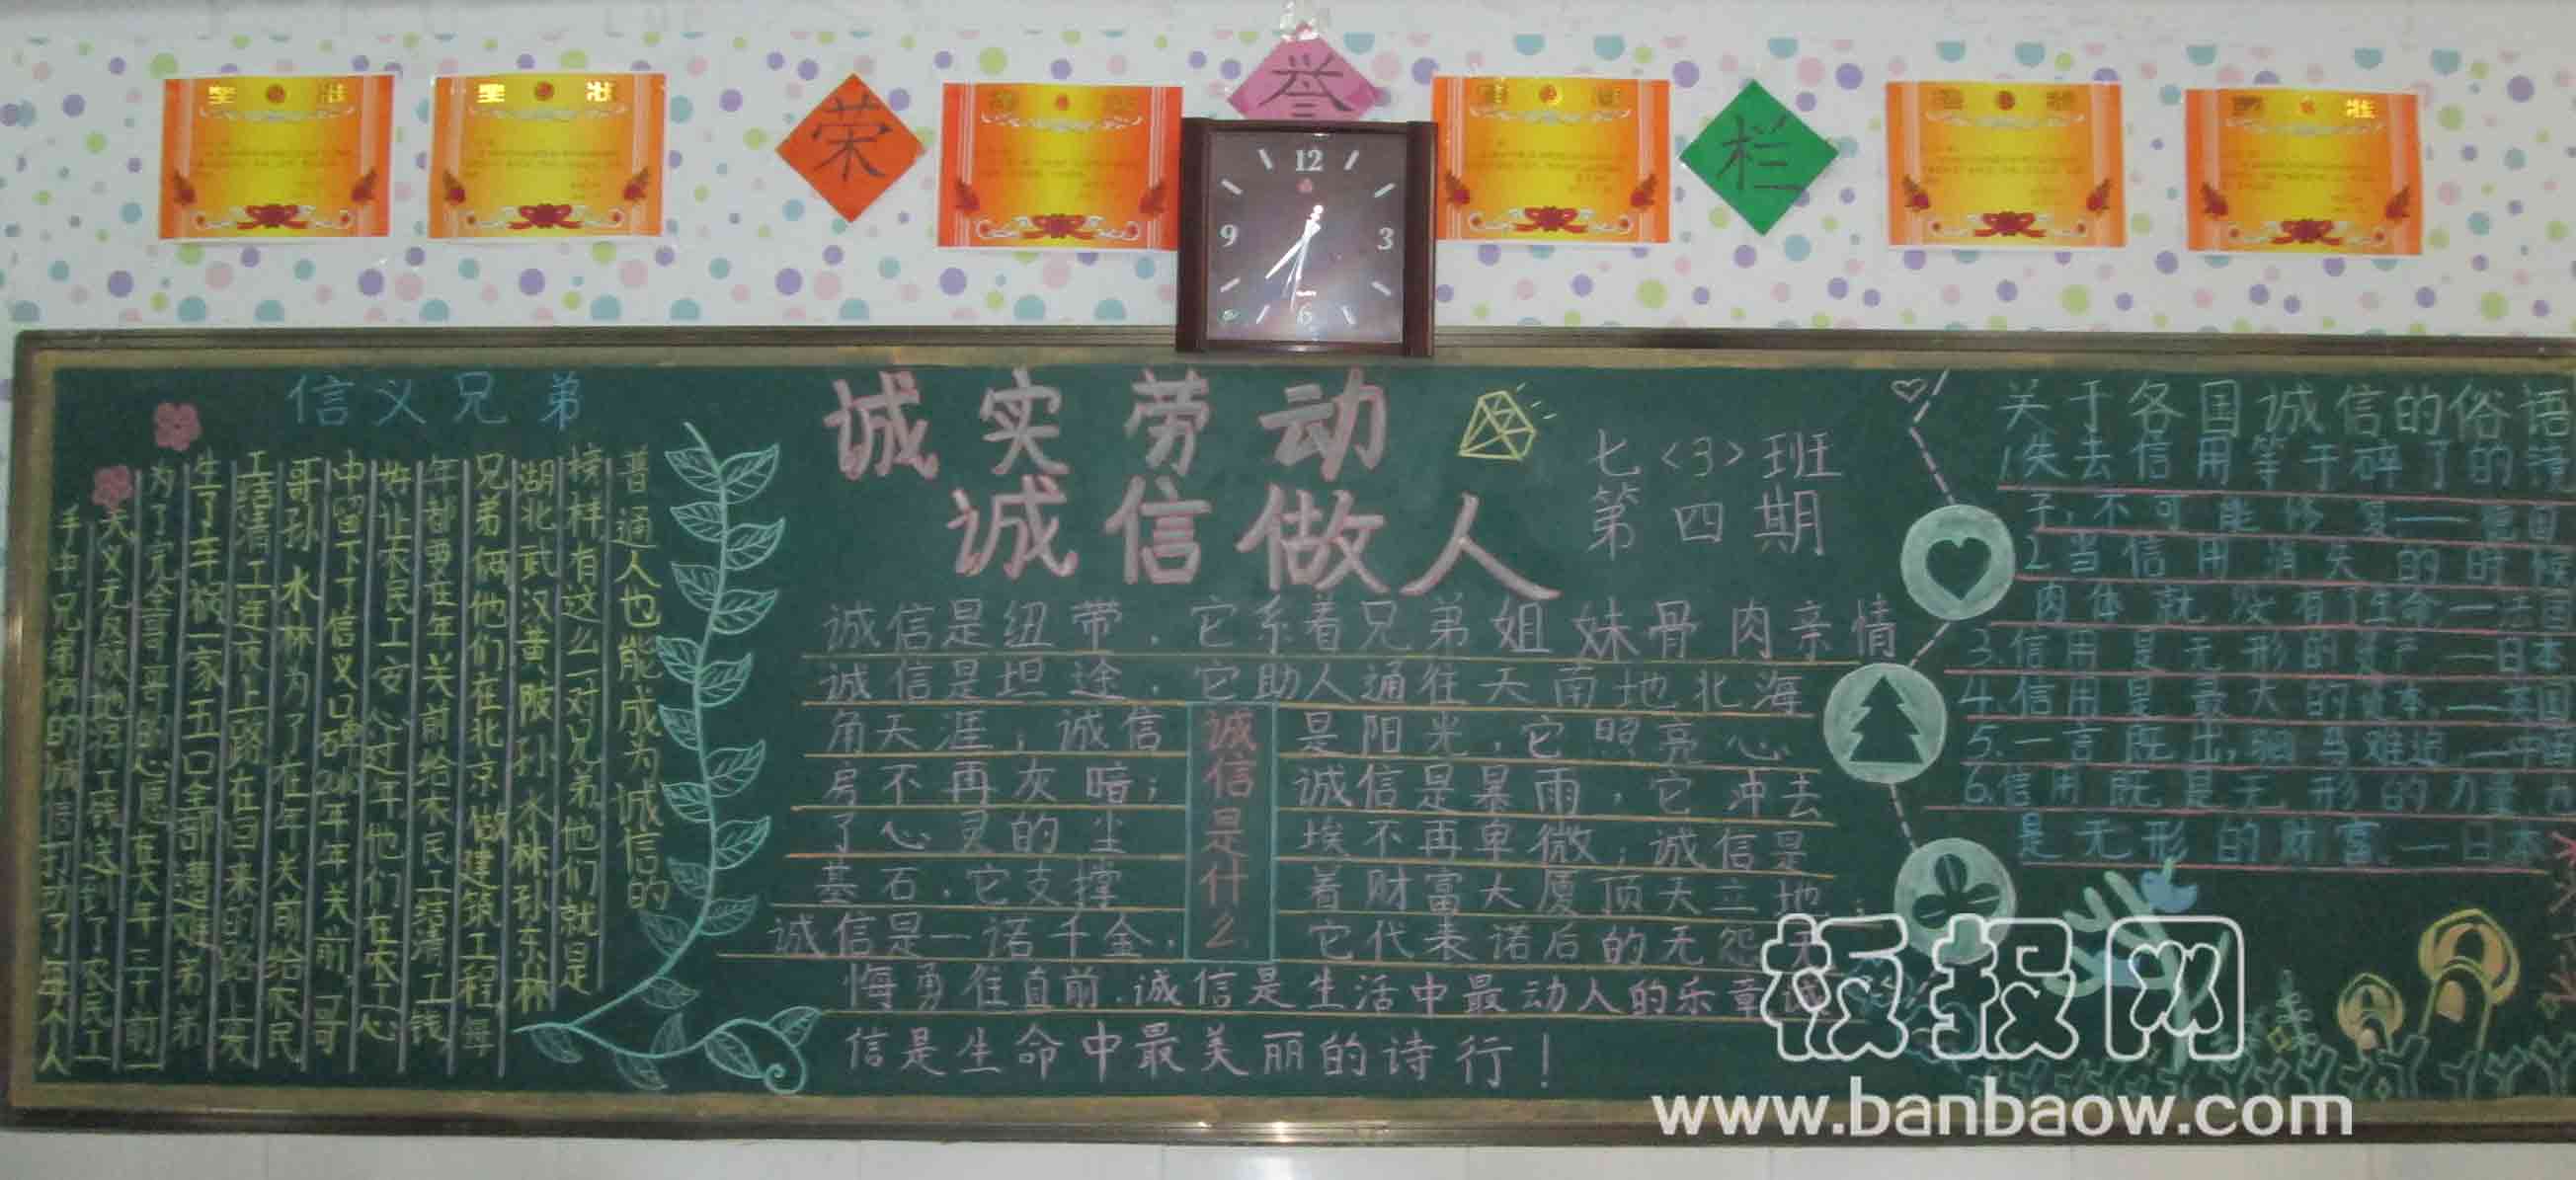 荣
誉
栏
12
9
3
6
信义兄弟
普通人也能成为诚信的
榜样有这么一对兄弟他们就是
湖北武汉黄陂孙水林孙东林
兄弟俩他们在北京做建筑工程每
年都要在年关前给农民工结清工钱
好让农民工安心过年他们在农工心
中留下了信义口碑
年年关前哥
哥孙水林为了在年关前给农民
工结清工
连夜上路在回来的路上发
生了车祸一家五口全部遭难弟弟
为了完全哥哥的心愿在大年三十前一
天义无反顾地将工钱送到了农民工
手中兄弟俩的诚信打动了每个人
诚实劳动
诚信做人
七<3>班
第四期
诚信是纽带,它系着兄弟姐妹骨肉亲情
诚信是坦途,它助人通往天南地北海
角天涯;诚信是阳光,它照亮心
房不再灰暗;诚信是暴雨,它冲去
了心灵的尘埃不再卑微;诚信是
基石,它支撑着财富大厦顶天立地
诚信是一诺千金,它代表诺后的无怨无
悔勇往直前.诚信是生活中最动人的乐章诚
信是生命中最美丽的诗行!
诚信是什么
关于各国诚信的俗语
1.失去信用等于碎了的镜
子,不可能修复——德国
2.当信用消失的时候
肉体就没有了生命—法国
3.信用是无形的资产—日本
4.信用是最大的资本.—美国
5.一言既出,驷马难追—中国
6.信用既是无形的力量,也
是无形的财富.—日本
板报网
www.banbaow.com